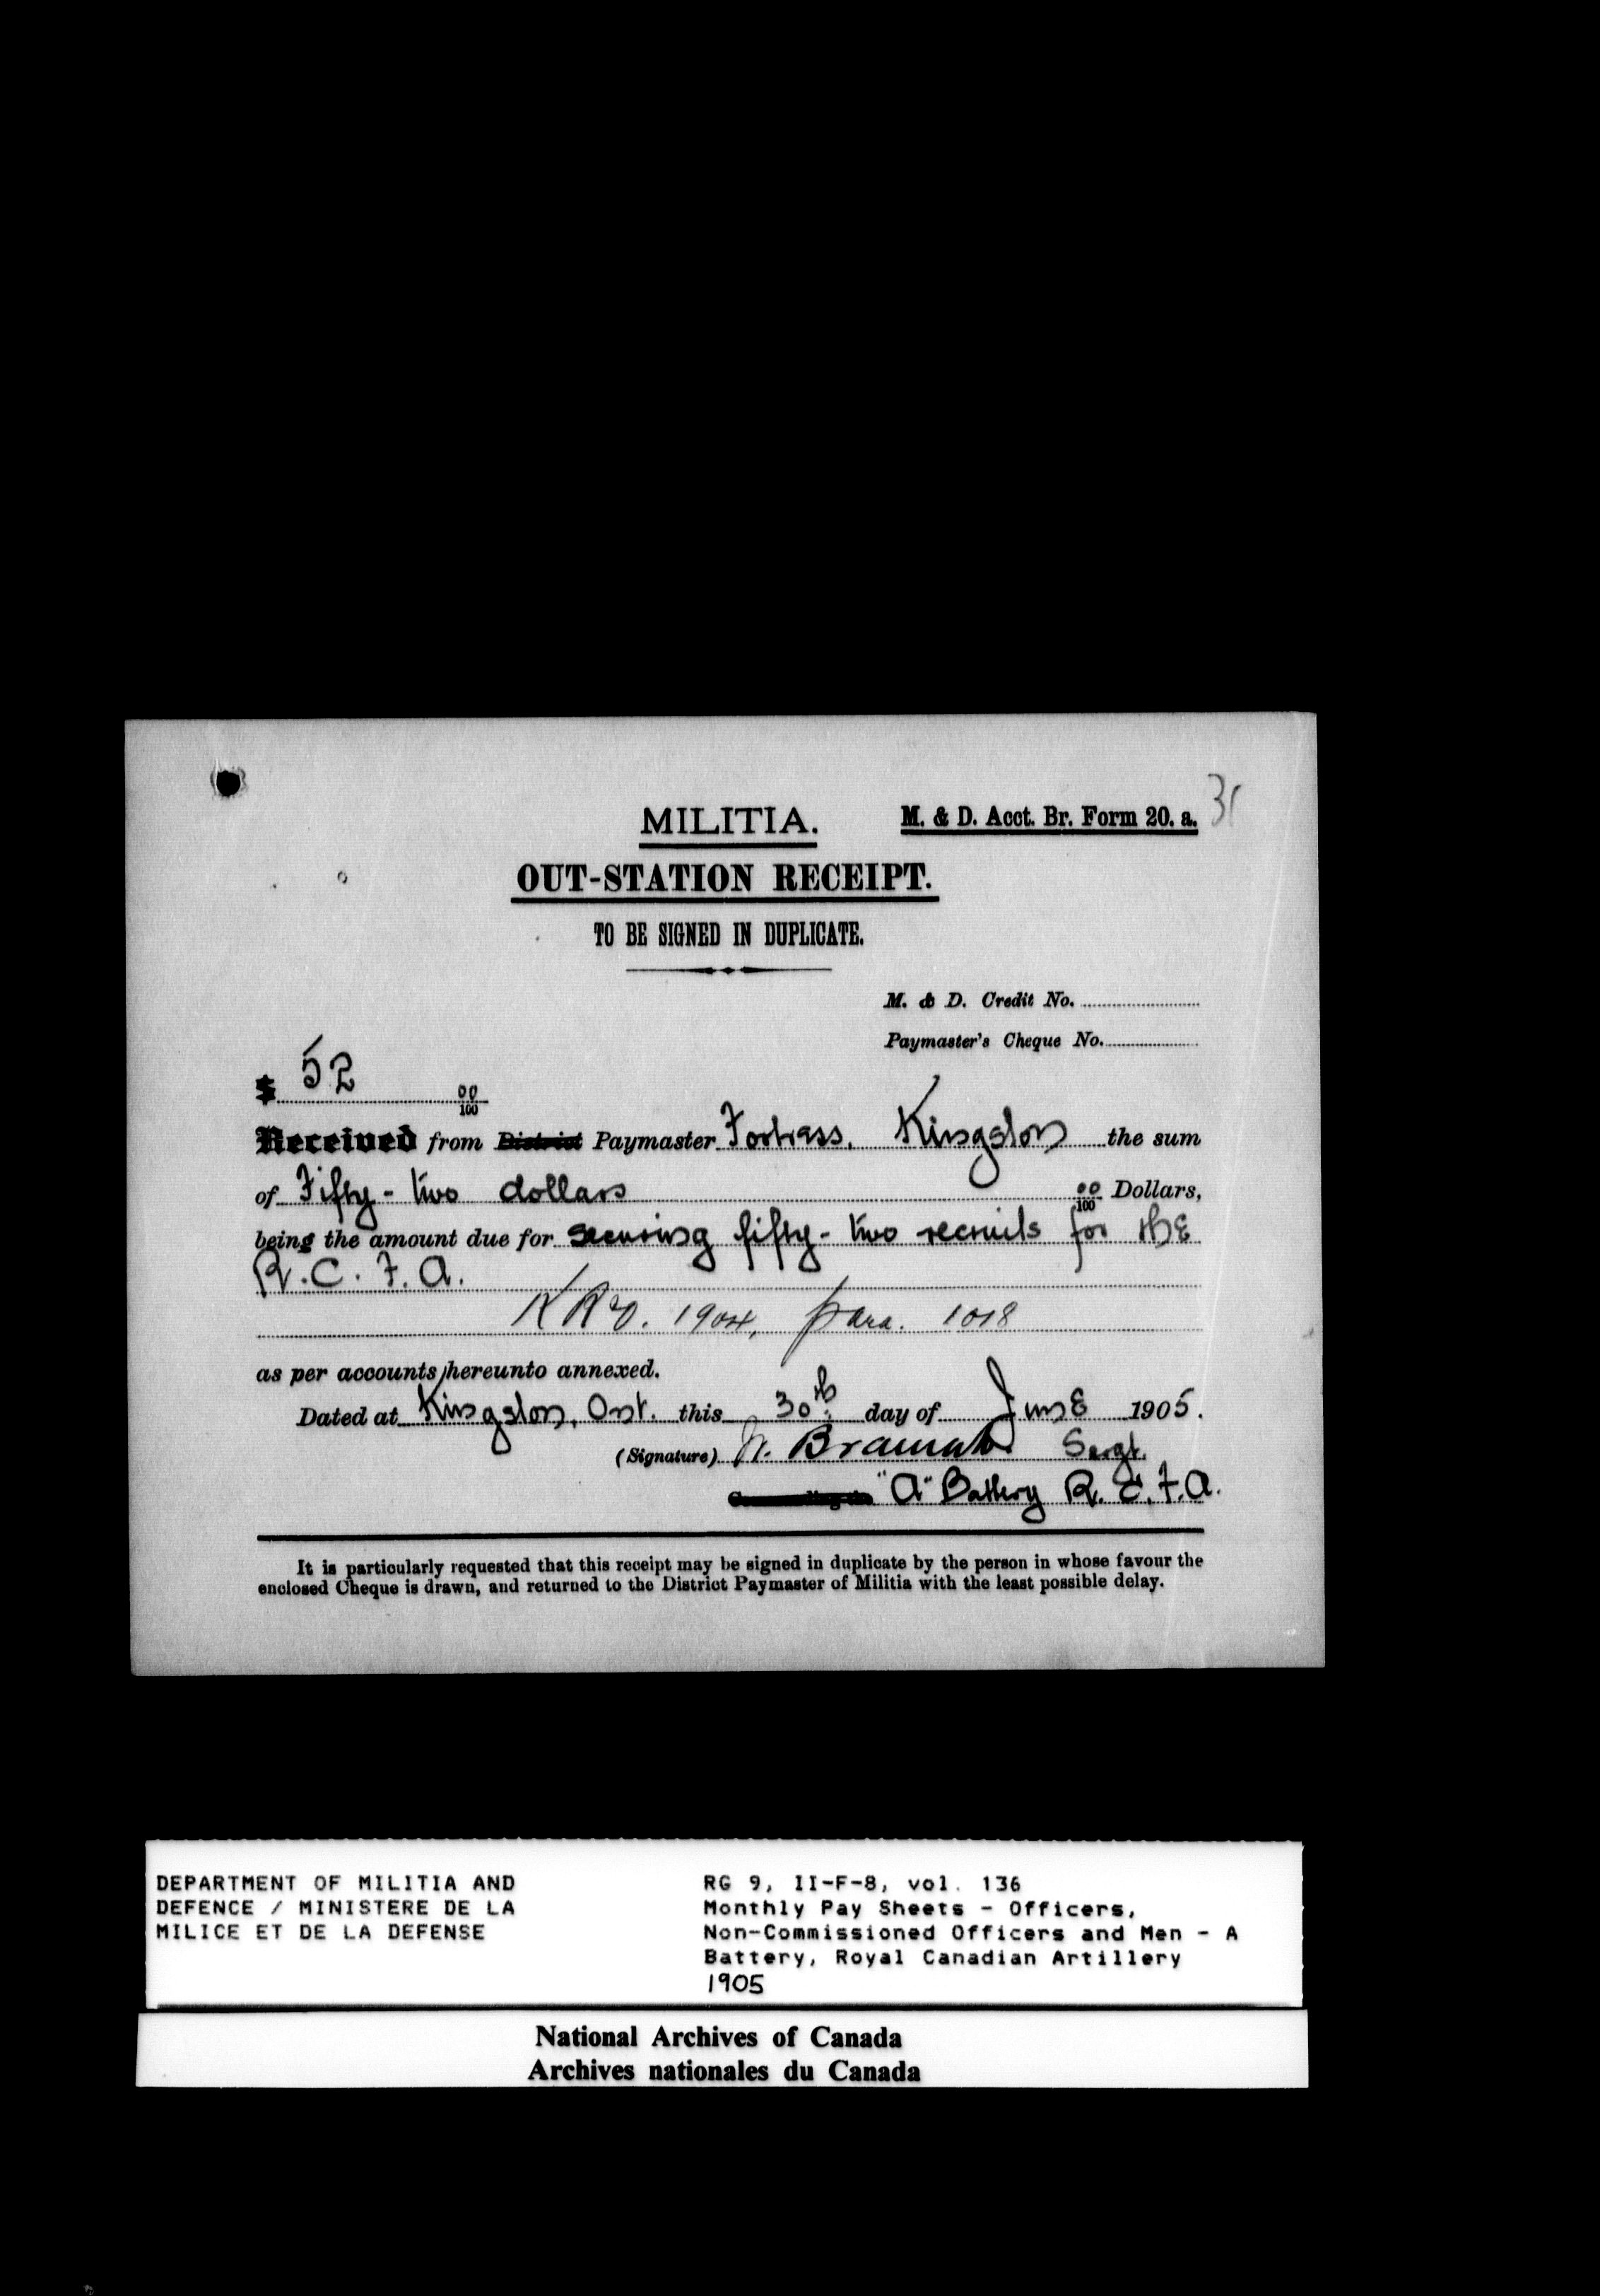 31
MILITIA.
M. & D. Acct. Br. Form 20. a.
OUT-STATION RECEIPT.
TO BE SIGNED IN DUPLICATE.
M. & D. Credit No.
Paymaster's Cheque No.
$ 52 00/100
Received from District Paymaster Fortress, Kingston the sum
of Fifty-two dollars 00/100 Dollars,
being the amount due for securing fifty-two recruits for the
R.C.F.A.
K R & O. 1904, para. 1018
as per accounts hereunto annexed.
Dated at Kingston, Ont. this 30th day of June 1905.
(Signature) Bramah Sergt.
"A" Battery R.C.F.A.
It is particularly requested that this receipt may be signed in duplicate by the person in whose favour the
enclosed Cheque is drawn, and returned to the District Paymaster of Militia with the least possible delay.
DEPARTMENT OF MILITIA AND
DEFENCE / MINISTERE DE LA
MILICE ET DE LA DEFENSE
RG 9, II-F-8, vol. 136
Monthly Pay Sheets - Officers,
Non-Commissioned Officers and Men - A
Battery, Royal Canadian Artillery
1905
National Archives of Canada
Archives nationales du Canada